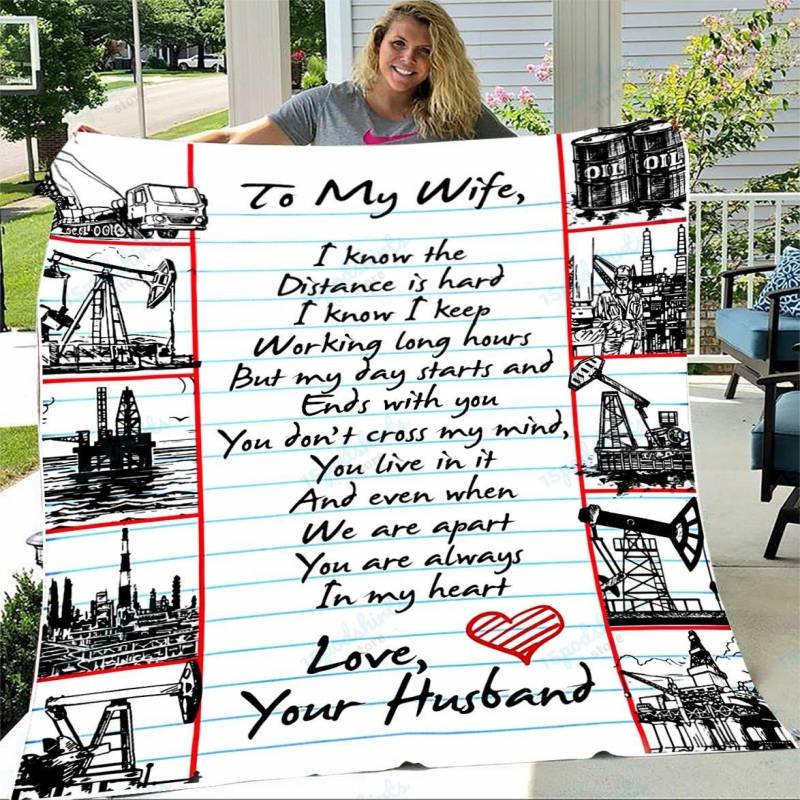 To My Wife,
I know the
Distance is hard
I know I keep
Working long hours
But my day starts and
Ends with you
You don't cross my mind,
You live in it
And even when
We are apart
You are always
In my heart
Love,
Your Husband
OIL OIL